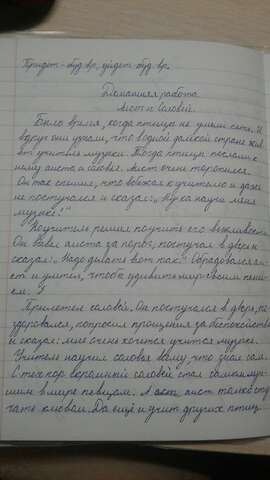 Придет - буд. вр., уйдет - буд. вр.
Домашняя работа
Аист и Соловей.
Было время, когда птицы не умели петь. И
вдруг они узнали, что в одной далёкой стране жив
ет учитель музыки. Тогда птицы послали к
нему аиста и соловья. Аист очень торопился.
Он так спешил, что вбежал к учителю и даже
не постучался и сказал: „Ну-ка научи меня
музыке!"
И учитель решил поучить его вежливости.
Он вывел аиста за порог, постучал в дверь и
сказал: „Надо делать вот так." Обрадовался а-
ист и улетел, чтобы удивить мир своим пени-
ем.
Прилетел соловей. Он постучался в дверь, по
здоровался, попросил прощения за беспокойство
и сказал: мне очень хочется учится музыке.
Учитель научил соловья всему что знал сам.
С тех пор соловей стал самым луч-
шим в мире певцом. А аист только сту
чать клювом. Да ещё и учит других птиц.